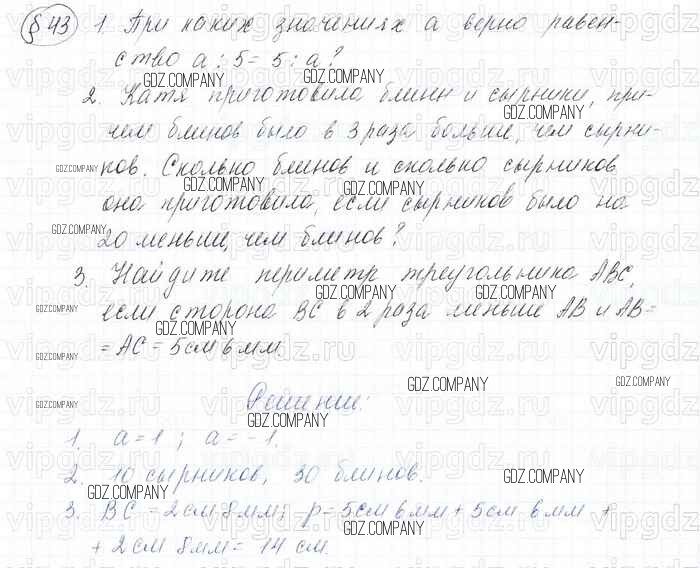 § 43 1. При каких значениях а верно равен-
ство а : 5 = 5 : а ?
GDZ.COMPANY GDZ.COMPANY
2. Катя приготовила блины и сырники, при-
GDZ.COMPANY
чем блинов было в 3 раза больше, чем сырни-
GDZ.COMPANY
ков. Сколько блинов и сколько сырников
GDZ.COMPANY GDZ.COMPANY
она приготовила, если сырников было на
GDZ.COMPANY
20 меньше, чем блинов?
3. Найдите периметр треугольника АВС,
GDZ.COMPANY GDZ.COMPANY
если сторона ВС в 2 раза меньше АВ и АВ=
GDZ.COMPANY
GDZ.COMPANY
= АС = 5см 6мм.
GDZ.COMPANY
GDZ.COMPANY GDZ.COMPANY
Решение:
GDZ.COMPANY
GDZ.COMPANY
1. а = 1 ; а = -1.
2. 10 сырников, 30 блинов.
GDZ.COMPANY
GDZ.COMPANY
3. ВС = 2см 8мм; р = 5см 6мм + 5см 6мм +
GDZ.COMPANY
+ 2см 8мм = 14 см.
vipgdz.ru